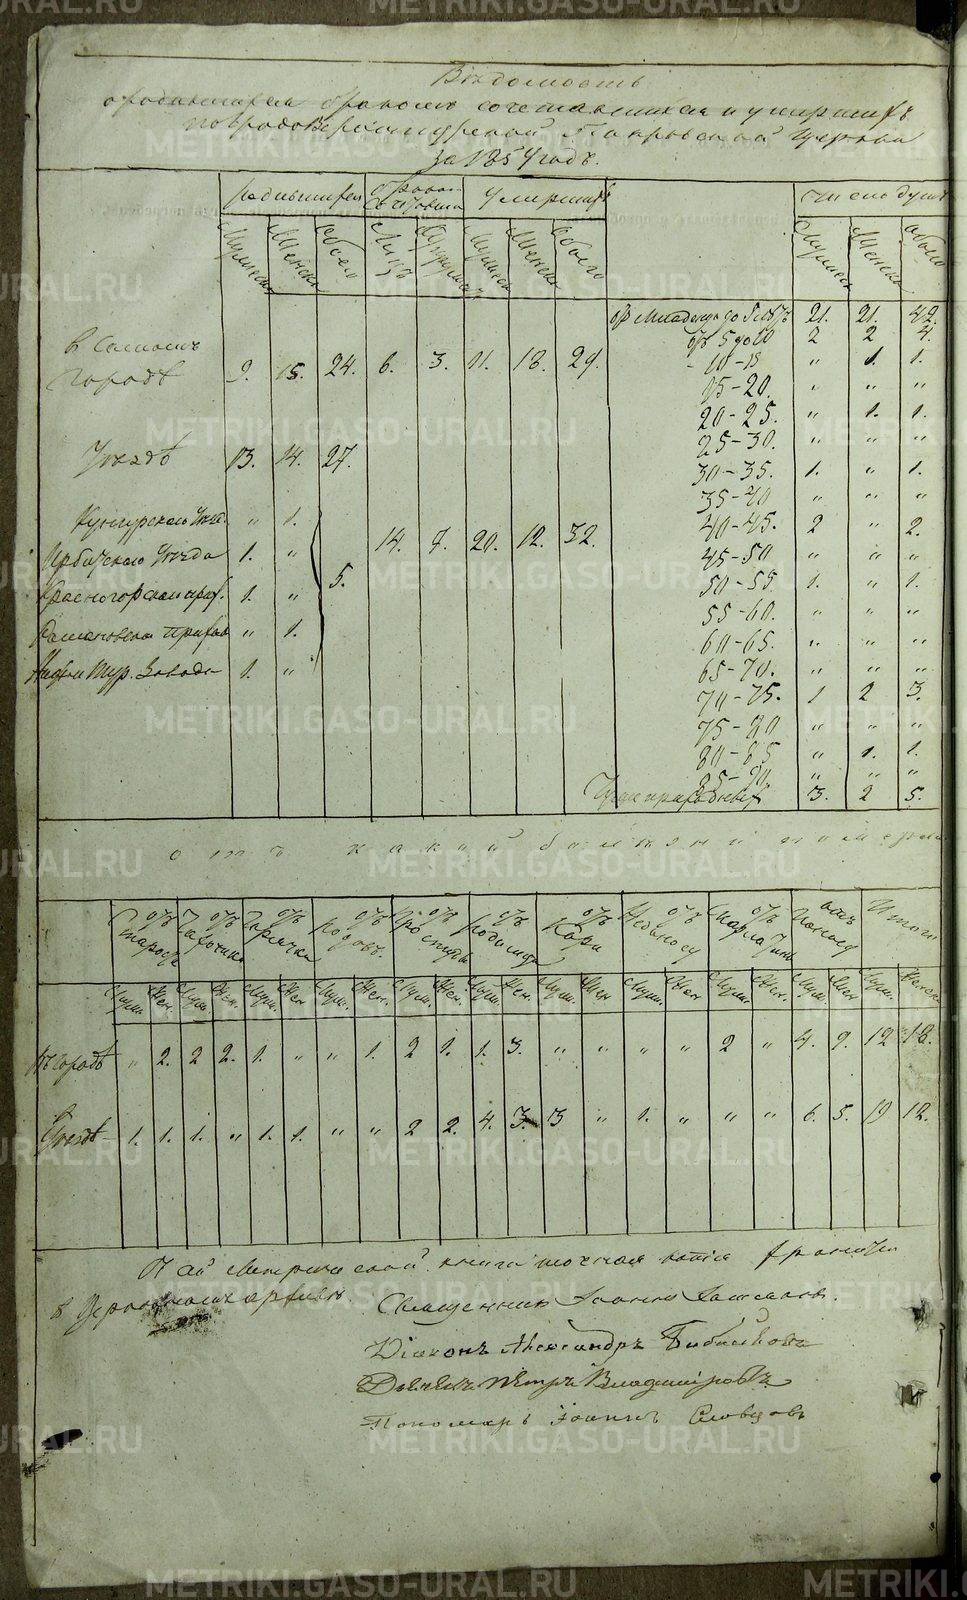 Вѣдомость
о родившихся бракомъ сочетавшихся и умершихъ
по градоверхотурской Покровской церкви
за 1854 годъ.
Родившихся
браком сочетавш
Умершихъ
Число душъ
Мужеск
Женска
Обоего
Лицъ
Супружест
Мужеска
Женска
Обоего
Мужеск
Женска
обоего
въ самомъ
городѣ 9. 15. 24. 6. 3. 11. 18. 29.
Уѣздѣ 13. 14. 27.
Кунгурскаго Уѣзд. " 1.
Ирбитскаго Уѣзда 1. "
Красногорскаго прих. 1. "
прихода " 1.
Нижне Тур. Завода 1. "
5. 14. 7. 20. 12. 32.
отъ младенца до 5 лѣтъ 21. 21. 42.
отъ 5 до 10 2 2 4.
- 10-15 " 1. 1.
15-20. " " "
20-25. " 1. 1.
25-30. " " "
30-35. 1. " 1.
35-40 " " "
40-45. 2 " 2.
45-50 " " "
50-55. 1. " 1.
55-60. " " "
60-65. " " "
65-70. " " "
70-75. 1 2 3.
75-80 " " "
80-85 " 1. 1.
85-90. " " "
3. 2 5.
отъ какой болѣзни померли
отъ Старости
отъ Чахотки
отъ Горячки
отъ Родовъ.
отъ Простуды
отъ Родимца
отъ Кори
отъ
отъ Скарлатины
отъ Поноса
Итого
Муж. Жен. Муж. Жен. Муж. Жен Муж. Жен. Муж. Жен. Муж. Жен. Муж. Жен Муж. Жен Муж. Жен. Муж. Жен Муж. Женск
Въ городѣ " 2. 2 2. 1. " " 1. 2 1. 1. 3. " " " " 2 " 4. 9. 12 18.
Уѣздѣ 1. 1. 1. " 1. 1. " " 2 2. 4. 3. 3 " 1. " " " 6. 5. 19 12.
Сей Метрической книги точная копія хранится
въ церковномъ архивѣ
Священникъ Іоаннъ
Діаконъ Александръ Бибиковъ
Дьячекъ Петръ Владиміровъ
Пономарь Іоаннъ Словцовъ
METRIKI.GASO-URAL.RU